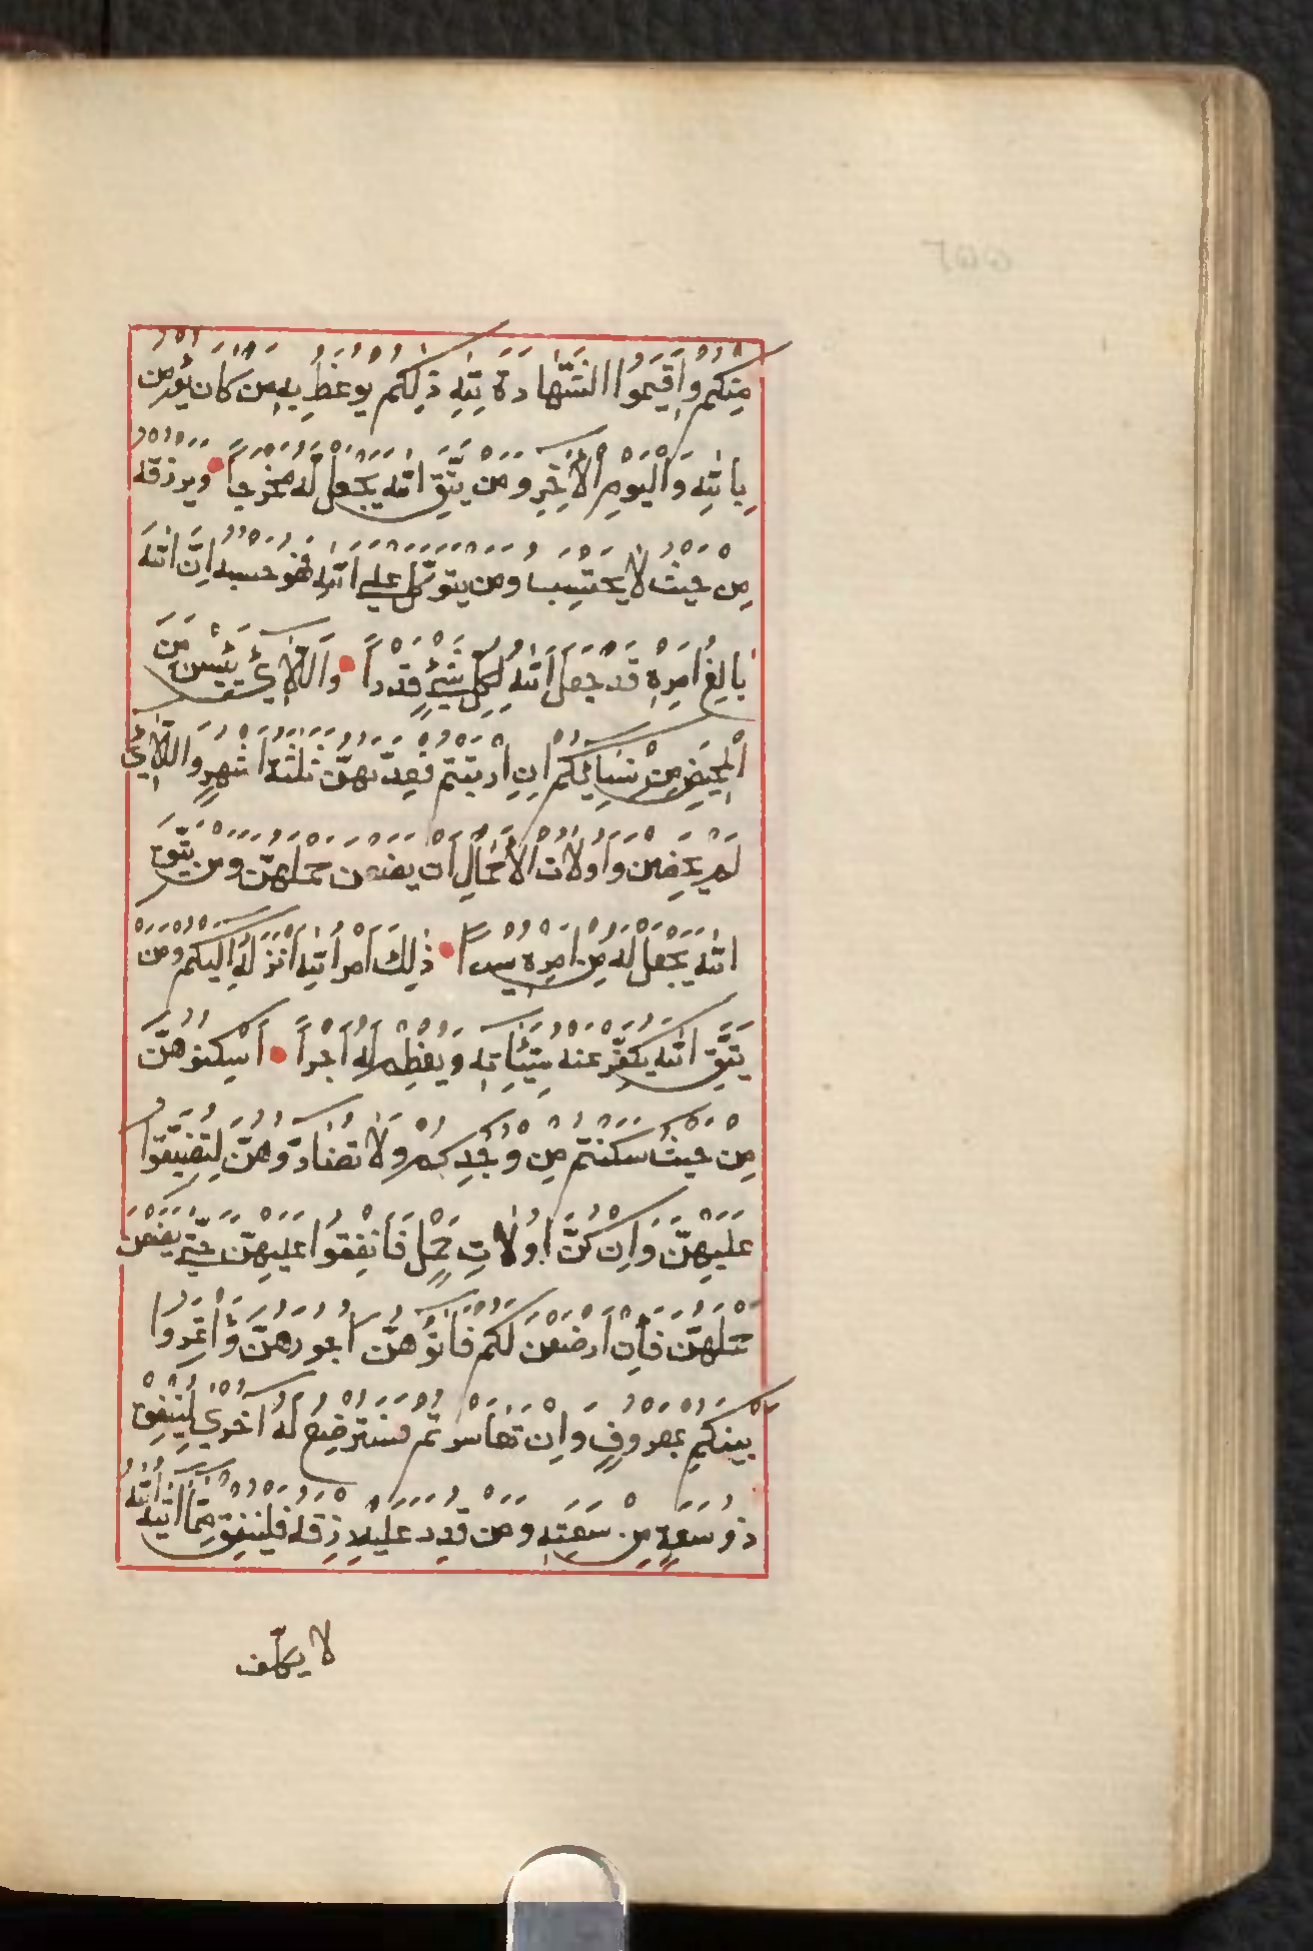 مِنكُم وَأَقِيمُوا الشَّهَادَةَ لِلَّهِ ذَلِكُم يُوعَظُ بِهِ مَن كَانَ يُؤمِن
بِاللَّهِ وَاليَومِ الأَخِرِ وَمَن يَتَّقِ اللَّه يَجْعَل لَّه مَخْرَجاً وَيَرزقه
مِن حَيثُ لَا يَحتَسِب وَمَن يَتَوَكَّل عَلَى اللَّهِ فَهُوَ حَسبه اِنَّ اللَّهَ
بَالِغُ اَمرِهِ قَدْ جَعَلَ اللَّهُ لِكُلِّ شَيْءٍ قَدْراً وَاللَّائِي يَئِسنَ مِنَ
الْمَحِيضِ مِنْ نِسَائِكُم اِنِ ارتَبتُم فَعِدَّتهنَّ ثَلثَةُ اَشهُرٍ وَاللَّائِي
لَم يَحِضنَ وَأُولَات الأَحمَالِ اَجَلُهُنَّ اَن يَضَعنَ حَملَهنَّ وَمَن يَتَّقِ
اللَّه يَجْعَل لَه مِن اَمرِهِ يُسراً ذَلِكَ اَمرُ اللَّهِ اَنزَلَهُ اِلَيكُم وَمَن
يَتَّقِ اللَّه يُكَفِّر عَنهُ سَيِّئَاتِهِ وَيُعْظِم لَهُ اَجراً اَسكِنُوهُنَّ
مِن حَيثُ سَكَنتُم مِن وُجدِكُم وَلَا تُضَارُّوهُنَّ لِتُضَيِّقُوا
عَلَيهِنَّ وَاِن كُنَّ اُولَاتِ حَمْلٍ فَاَنفِقُوا عَلَيهِنَّ حَتَّى يَضَعنَ
حَملَهنَّ فَاِن اَرضَعنَ لَكُم فَاتُوهُنَّ اُجُورَهُنَّ وَأتَمِرُوا
بَينَكُم بِمَعرُوفٍ وَاِن تَعَاسَرتُم فَسَتُرضِعُ لَهُ اُخرَى لِيُنفِق
ذُو سَعَةٍ مِن سَعَتِهِ وَمَن قُدِرَ عَلَيهِ رِزقُه فَليُنفِق مِمَّا اتَيهُ اللَّهُ
لا يكلّف